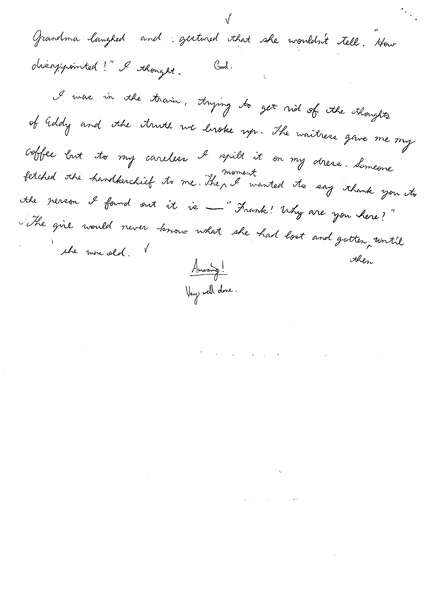 Grandma laughed and gestured that she wouldn't tell. "How
disappointed!" I thought.
I was in the train, trying to get rid of the thoughts
of Eddy and the truth we broke up. The waitress gave me my
coffee but to my careless I spilt it on my dress. Someone
moment
fetched the handkerchief to me. The, I wanted to say thank you to
the person I found out it is — "Frank! Why are you here?"
The girl would never know what she had lost and gotten, until
then
she was old.
Amazing!
Very well done.